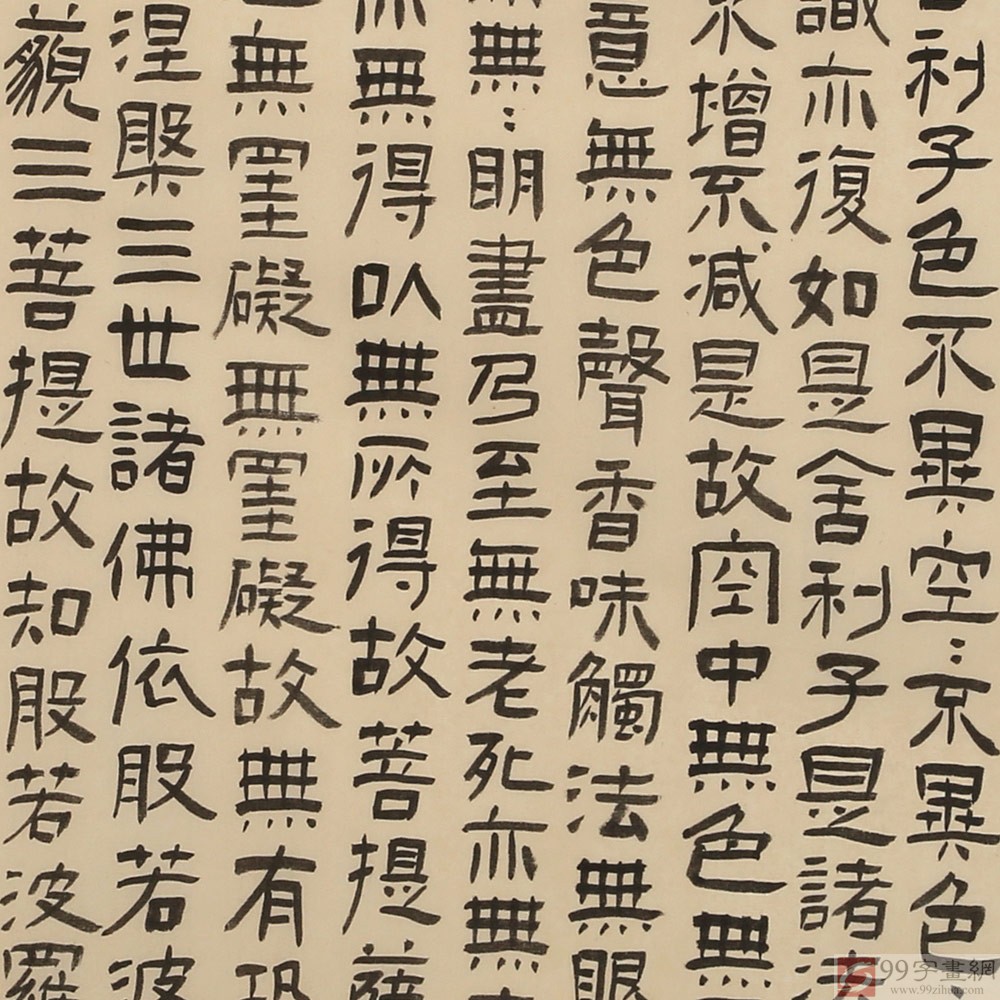 利子色不異空:不異色
識亦復如是舍利子是諸法
不增不減是故空中無色無
意無色聲香味觸法無眼
無無:明盡乃至無老死亦無
亦無得以無所得故菩提薩
無罣礙無罣礙故無有恐
涅槃三世諸佛依般若波
藐三菩提故知般若波羅
99字畫網
www.99zihua.com